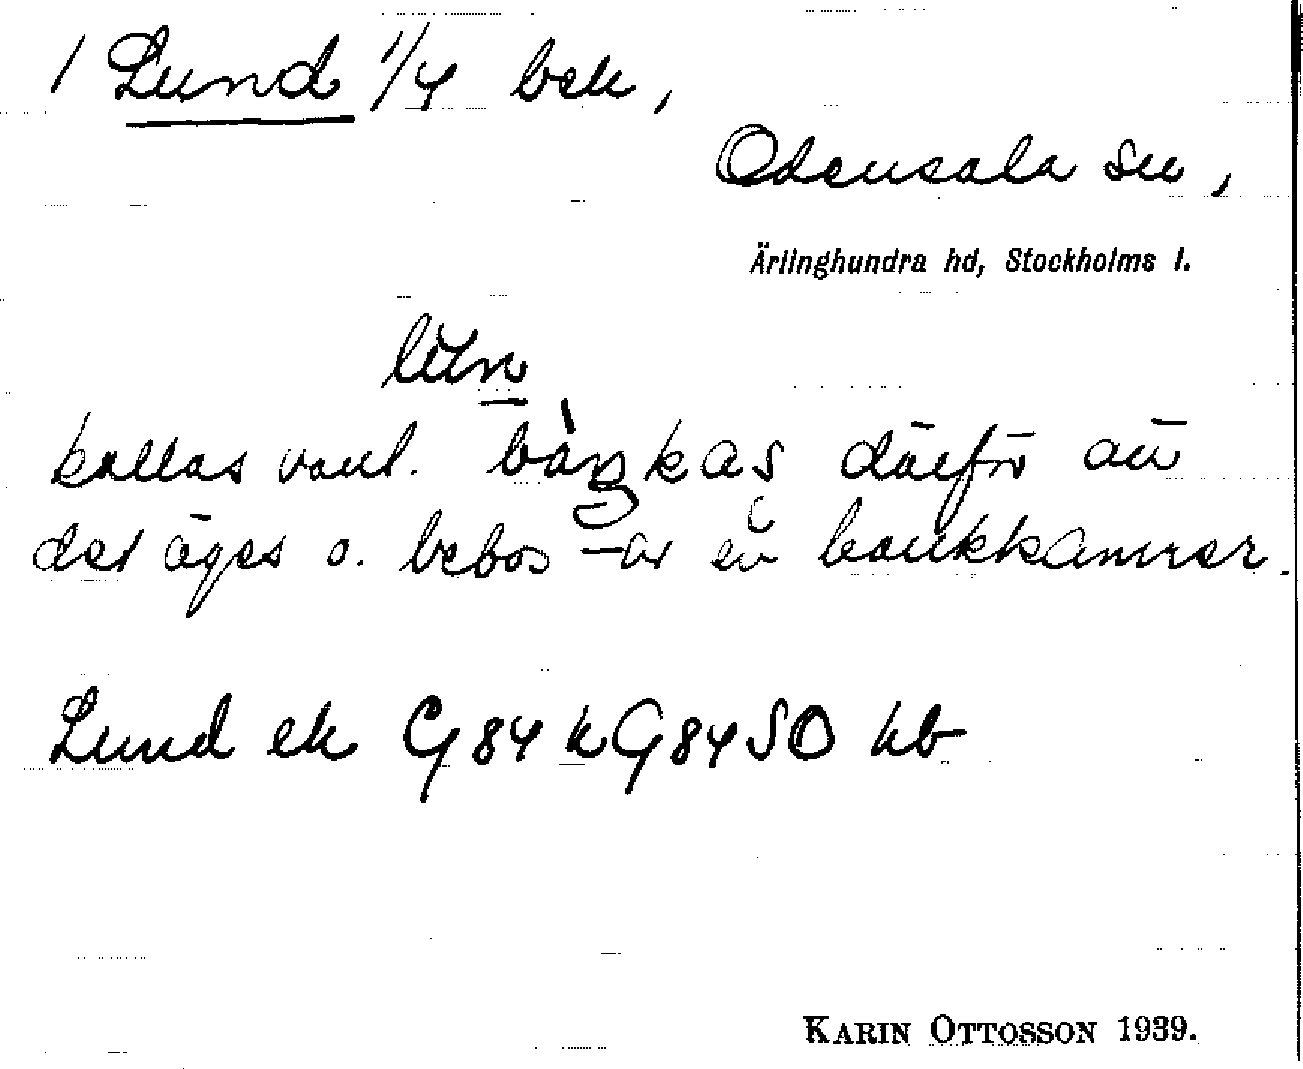 1 Lund 1/4 bek,
Odensala sn,
Ärlinghundra hd, Stockholms l.
lun
kallas vanl. bàŋkas därför att
det äges o. bebos av en bankkamrer.
Lund ek G84 k G84SO kb
KARIN OTTOSSON 1939.